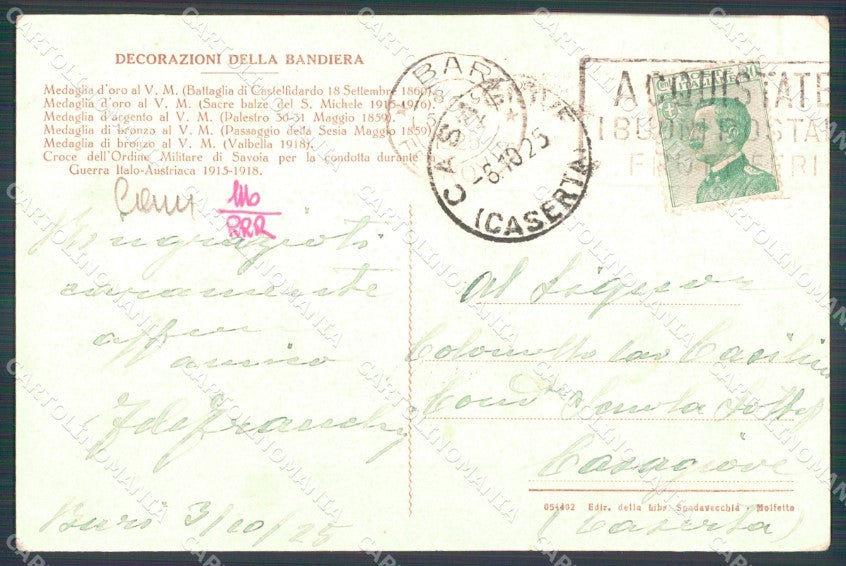 DECORAZIONI DELLA BANDIERA
Medaglia d'oro al V. M. (Battaglia di Castelfidardo 18 Settembre 1860).
Medaglia d'oro al V. M. (Sacre balze del S. Michele 1915-1916).
Medaglia d'argento al V. M. (Palestro 30-31 Maggio 1859).
Medaglia di bronzo al V. M. (Passaggio della Sesia Maggio 1859).
Medaglia di bronzo al V. M. (Valbella 1918).
Croce dell'Ordine Militare di Savoia per la condotta durante
Guerra Italo-Austriaca 1915-1918.
RRR
Ringrazioti
caramente
amico
Bari 3/10/25
BARI
CASAGIOVE
-6.10.25
(CASERTA)
ACQUISTATE
I BUONI POSTA
FRUTTIFERI
Al Signor
Colonnello
Scuola
Casagiove
(Caserta)
054402 Ediz. della Libr. Spadavecchia - Molfetta
CARTOLINOMANIA